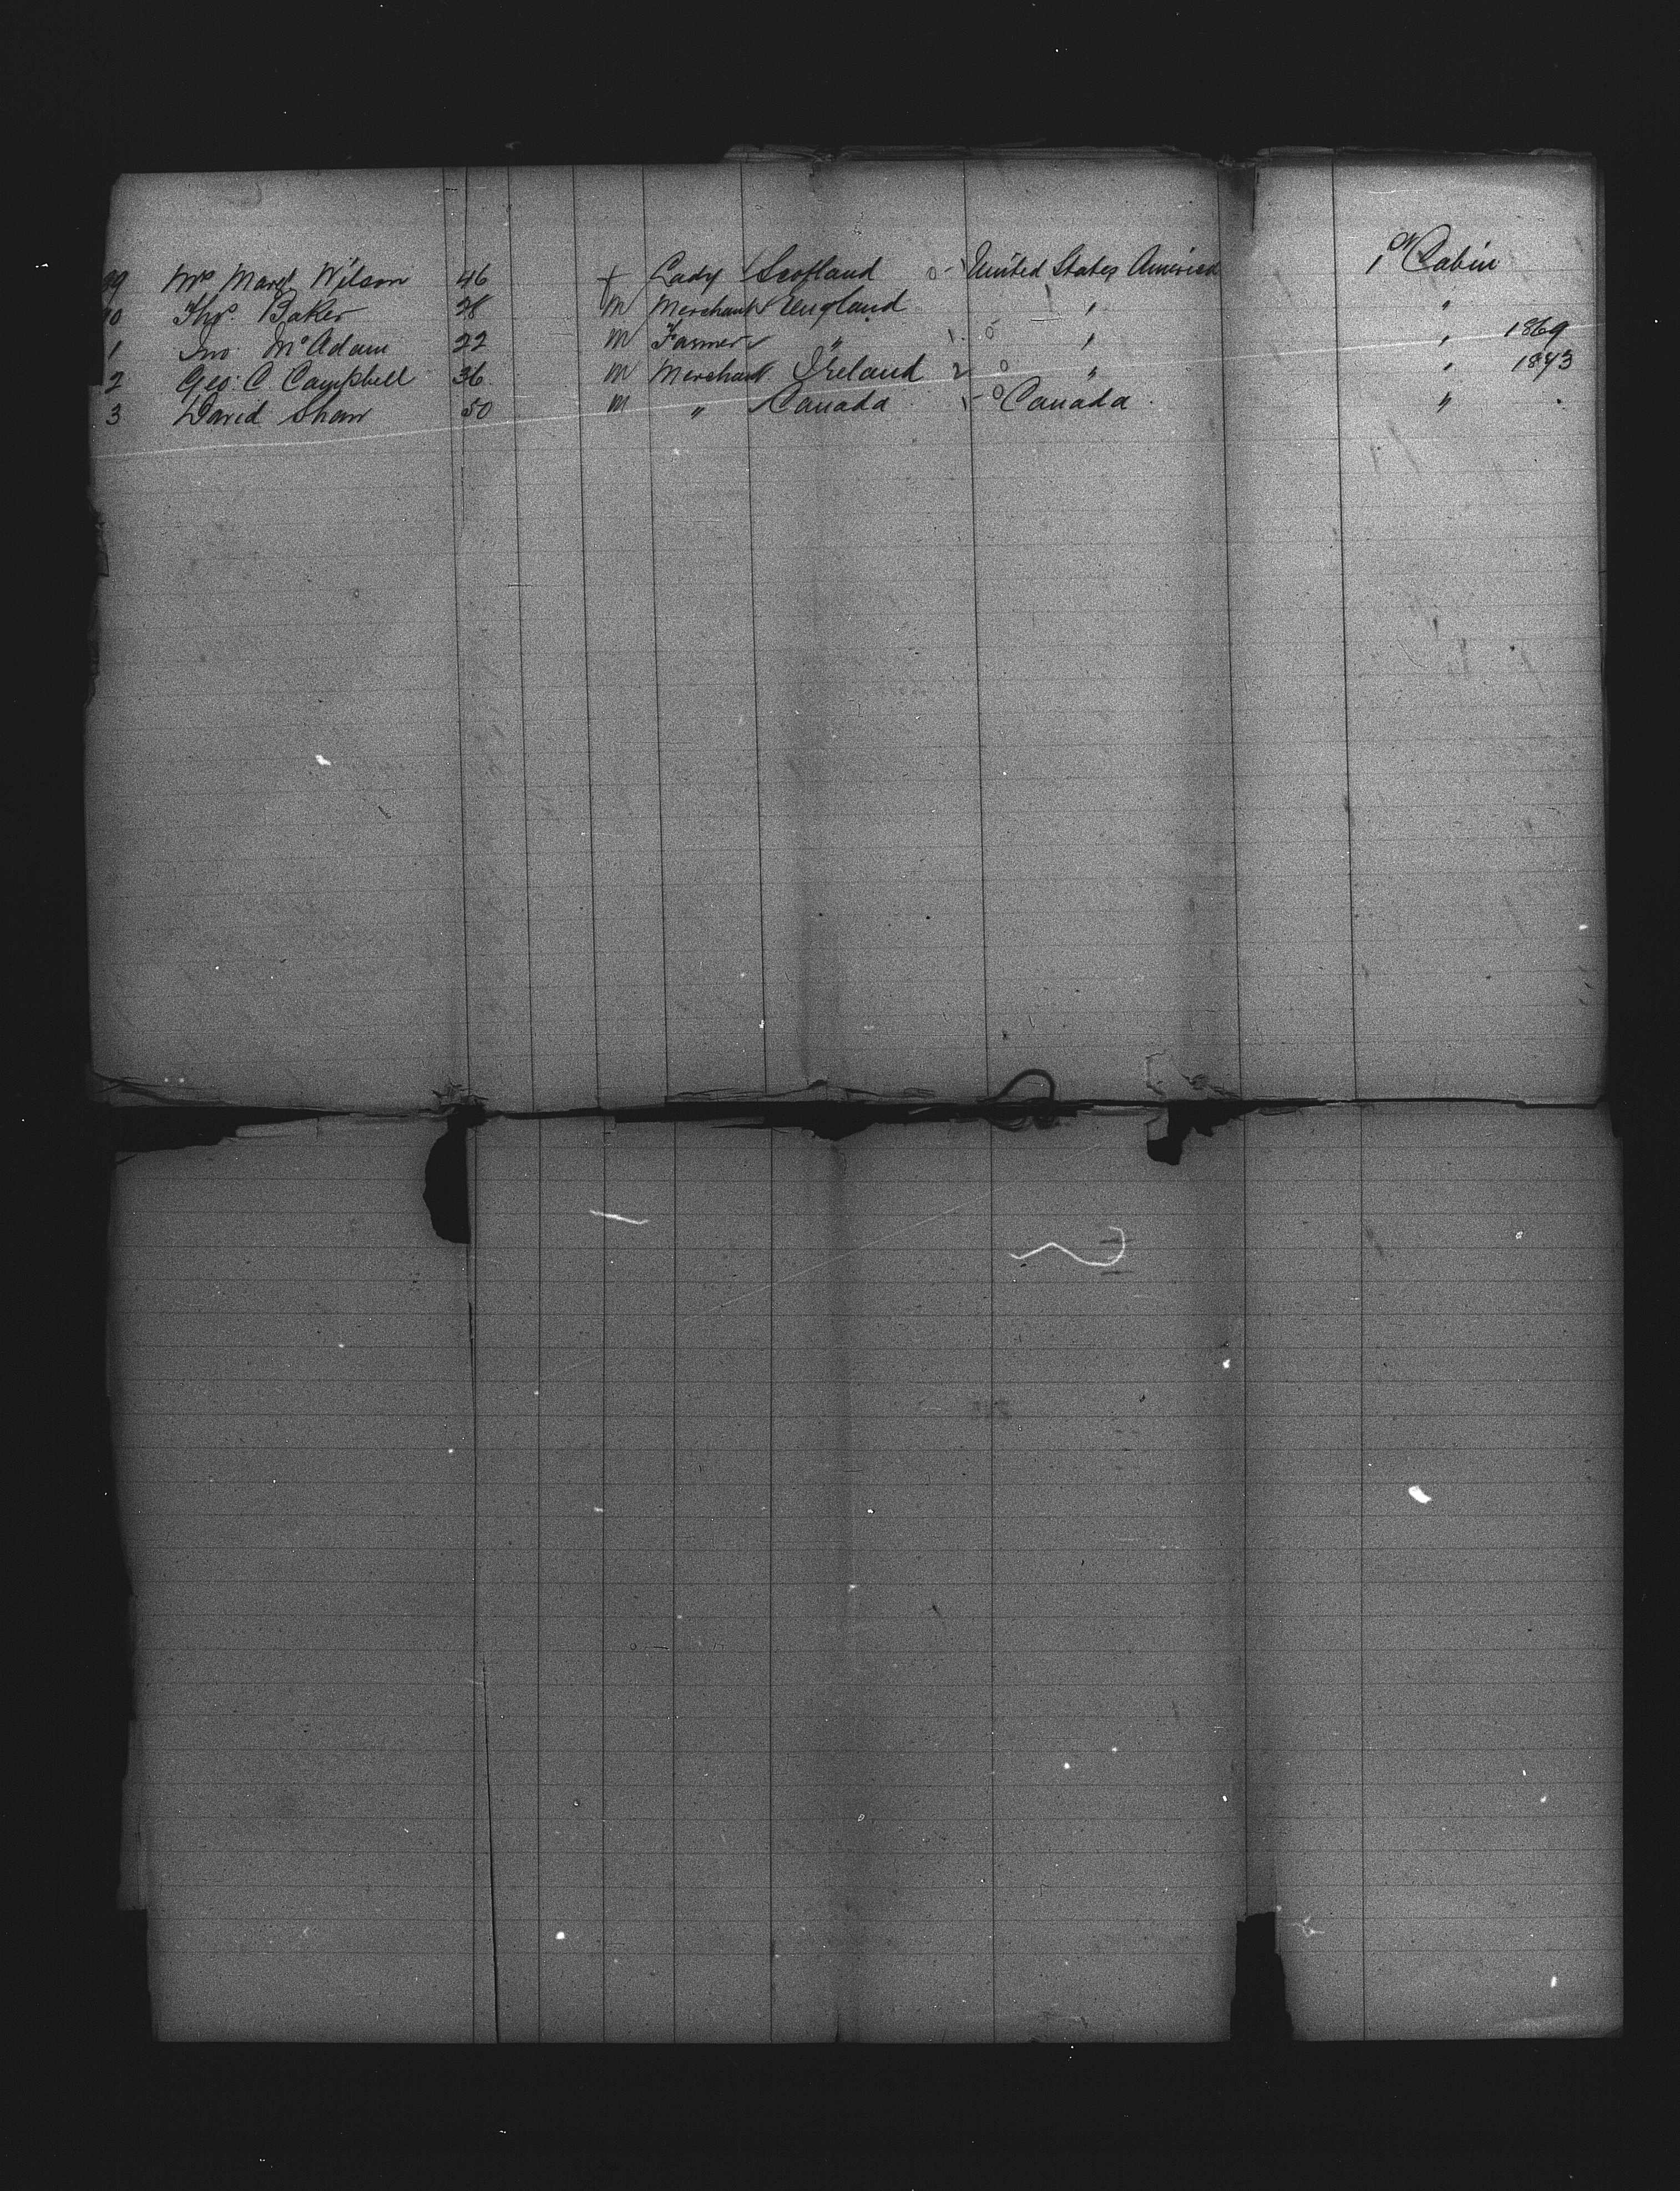 99 Mrs Margt Wilson 46 f Lady Scotland 0 - 1 United States America 1 Cabin
10 Thos. Baker 28 M Merchant England 1 " "
1 Jno McAdam 22 M Farmer " 1. 0 " " 1869
2 Geo. C Campbell 36 M Merchant Ireland 2 0 " " 1893
3 David Shaw 50 M " Canada 1 - 0 Canada "